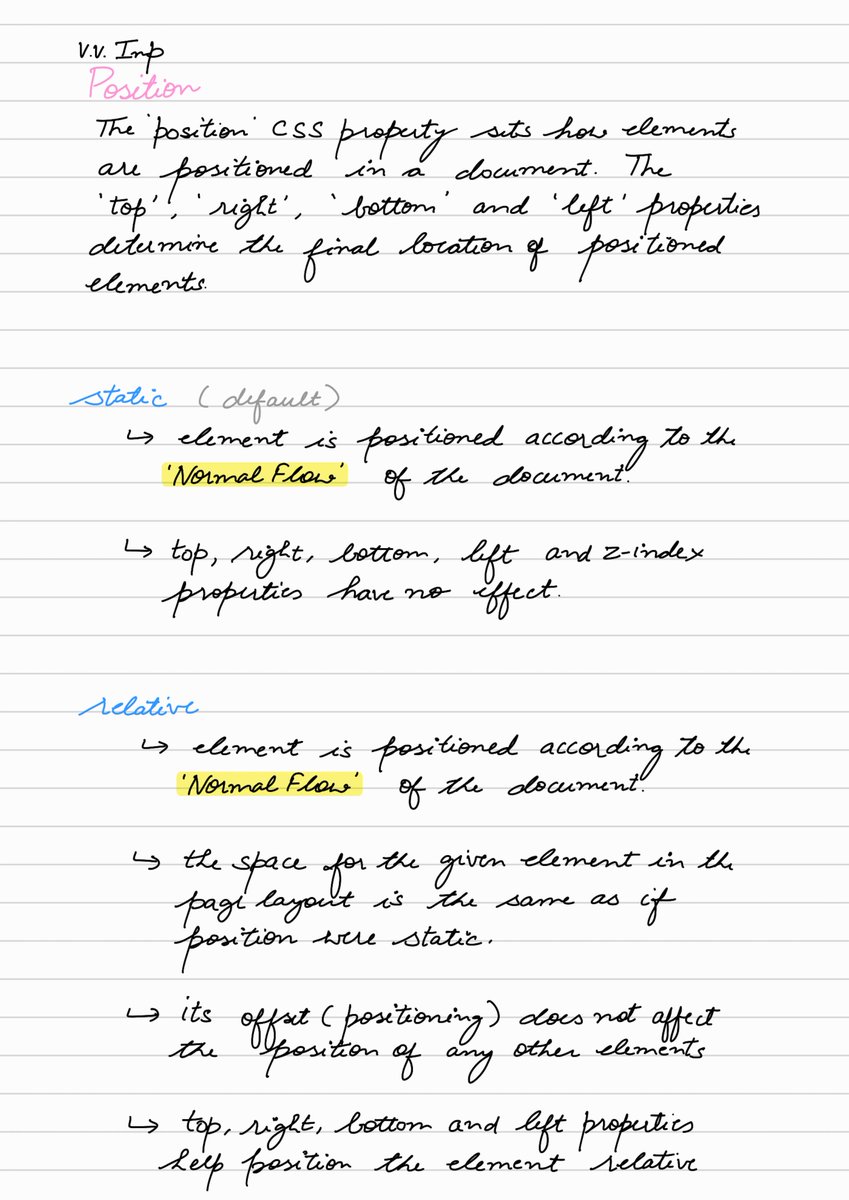 V.V. Imp
Position
The 'position' CSS property sets how elements
are positioned in a document. The
'top', 'right', 'bottom' and 'left' properties
determine the final location of positioned
elements.
static (default)
↳ element is positioned according to the
'Normal Flow' of the document.
↳ top, right, bottom, left and z-index
properties have no effect.
relative
↳ element is positioned according to the
'Normal Flow' of the document.
↳ the space for the given element in the
page layout is the same as if
position were static.
↳ its offset (positioning) does not affect
the position of any other elements
↳ top, right, bottom and left properties
help position the element relative